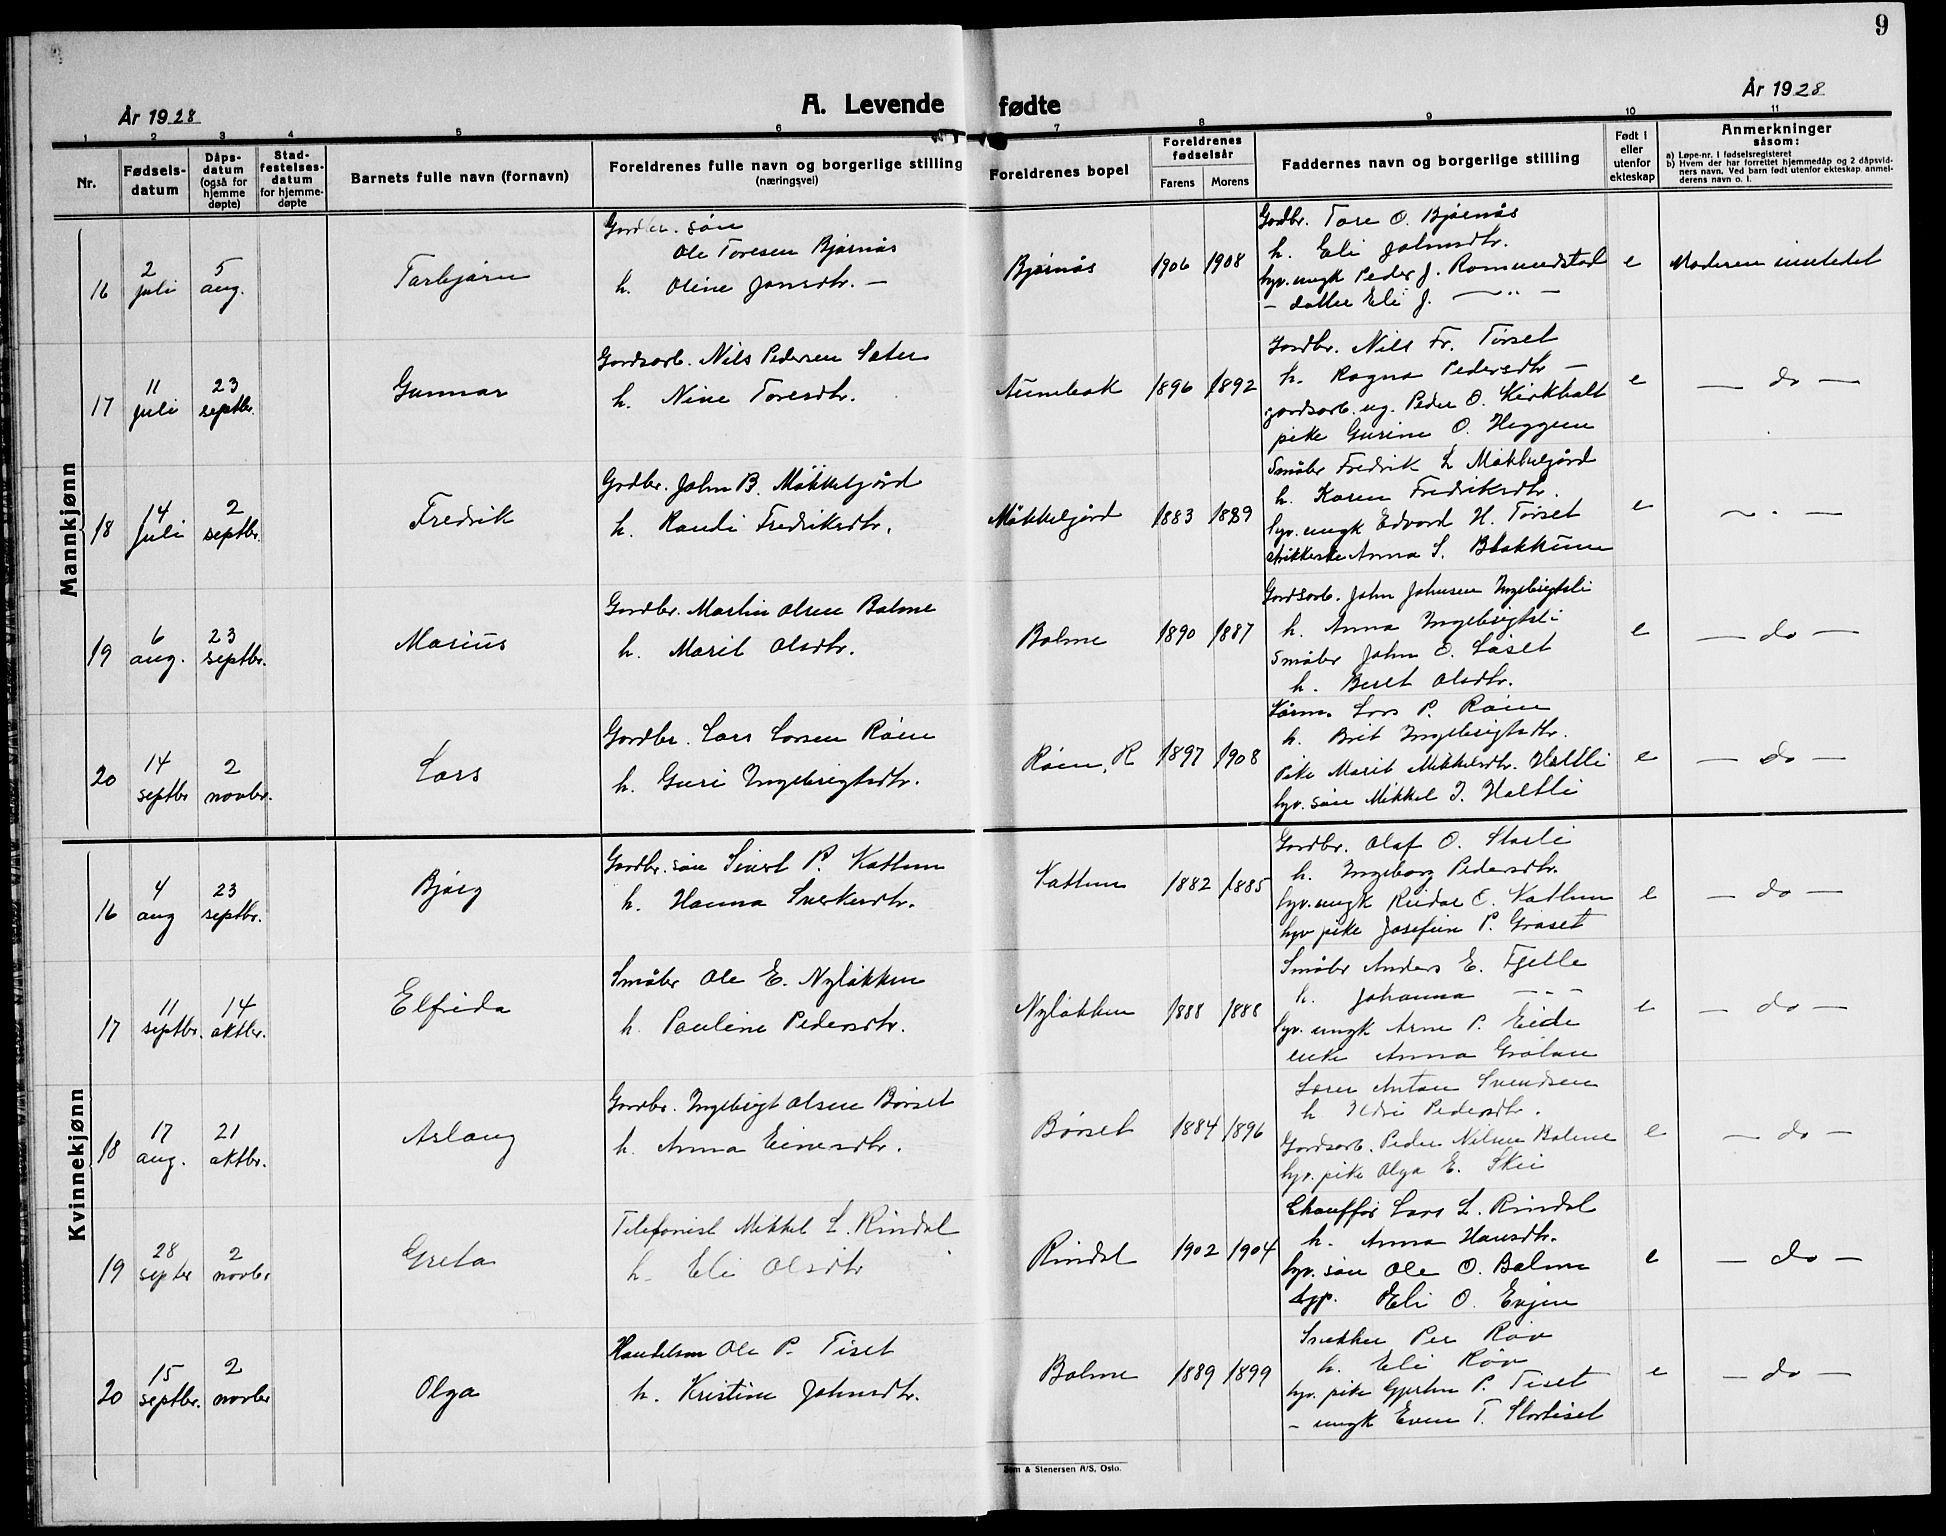 9
År 1928
A. Levende fødte
År 1928
1 2 3 4 5 6 7 8 9 10 11
Nr.
Fødsels-datum
Dåps-datum (også for hjemme døpte)
Stad-festelses-datum for hjemme-døpte
Barnets fulle navn (fornavn)
Foreldrenes fulle navn og borgerlige stilling (næringsvei)
Foreldrenes bopel
Foreldrenes fødselsår
Farens Morens
Faddernes navn og borgerlige stilling
Født i eller utenfor ekteskap
Anmerkninger såsom:
a) Løpe-nr. i fødselsregisteret
b) Hvem der har forrettet hjemmedåp og 2 dåpsvid-
ners navn. Ved barn født utenfor ekteskap anmel-
derens navn o. l.
Mannkjønn
16 2 juli 5 aug. Torbjørn
Gardbr. søn
Ole Toresen Bjørnås
h. Oline Jonsdtr. —
Bjørnås 1906 1908
Gardbr. Tore O. Bjørnås
h. Eli Johnsdtr.
hjv. ungk Peder J. Romundstad
— datter Eli J. — „ —
e Moderen inntedet
17 11 juli 23 septbr. Gunnar
Gardsarb. Nils Pedersen Sæter
h. Nine Toresdtr.
Aunebak 1896 1892
Gardbr. Nils Fr. Tørset
h. Ragna Pedersdtr —
gardsarb. ug. Peder O. Kirkholt
pike Gurine O. Heggem
e — do —
18 14 juli 2 septbr. Fredrik
Grdbr. John B. Møkkelgård
h. Randi Fredriksdtr.
Møkkelgård 1883 1889
Småbr Fredrik L Møkkelgård
h. Karen Fredriksdtr.
hjv. ungk Edvard H. Tørset
strikkerske Anna S. Blakkum
e — „ —
19 6 aug. 23 septbr. Marius
Gardbr. Martin Olsen Bolme
h. Marit Olsdtr.
Bolme 1890 1887
Gardsarb. John Johnsen Ingebrigtsli
h. Anna Ingebrigtsli
Småbr John O. Løset
h. Beret Olsdtr.
e — do —
20 14 septbr 2 novbr. Lars
Gardbr. Lars Larsen Røen
h. Guri Ingebrigtsdtr.
Røen, R 1897 1908
Kårm. Lars P. Røen
h. Brit Ingebrigtsdtr.
Pike Marit Mikkelsdtr. Holtli
hjv. søn Mikkel I. Holtli
e — do —
Kvinnekjønn
16 4 aug 23 septbr. Bjørg
Gardbr. søn Sivert P. Kattum
h. Hanna Sverkesdtr.
Kattum 1882 1885
Gardbr. Olaf O. Starli
h. Ingeborg Pedersdtr.
hjv. ungk Reidar E. Kattum
hjv pike Josefin P. Gråset
e — do —
17 11 septbr. 14 oktbr. Elfrida
Småbr Ole E. Nyløkken
h. Pauline Pedersdtr.
Nyløkken 1888 1888
Småbr Anders E. Tjelle
h. Johanna — „ —
hjv. ungk Arne P. Eide
enke Anna Grølan
e — do —
18 17 aug. 21 oktbr. Aslaug
Gardbr. Ingebrigt Olsen Børset
h. Anna Einesdtr.
Børset 1884 1896
Lærer Anton Svendsen
h Pedersdtr.
Gardsarb. Peder Nilsen Bolme
hjv. pike Olga E. Skei
e — do —
19 28 septbr 2 novbr Greta
Telefonist Mikkel L. Rindal
h. Eli Olsdtr
Rindal 1902 1904
Chauffør Lars L. Rindal
h. Anna Hansdtr.
hjv. søn Ole O. Bolme
hjp. Eli O. Evjen
e — do —
20 15 septbr. 2 novbr Olga
Handelsm Ole P. Tiset
h. Kristine Johnsdtr.
Bolme 1889 1899
Snekker Per Røv
h. Eli Røv
hjv. pike Gjertru P. Tiset
— ungk Even T. Stortiset
e — do —
Sem & Stenersen A/S, Oslo.